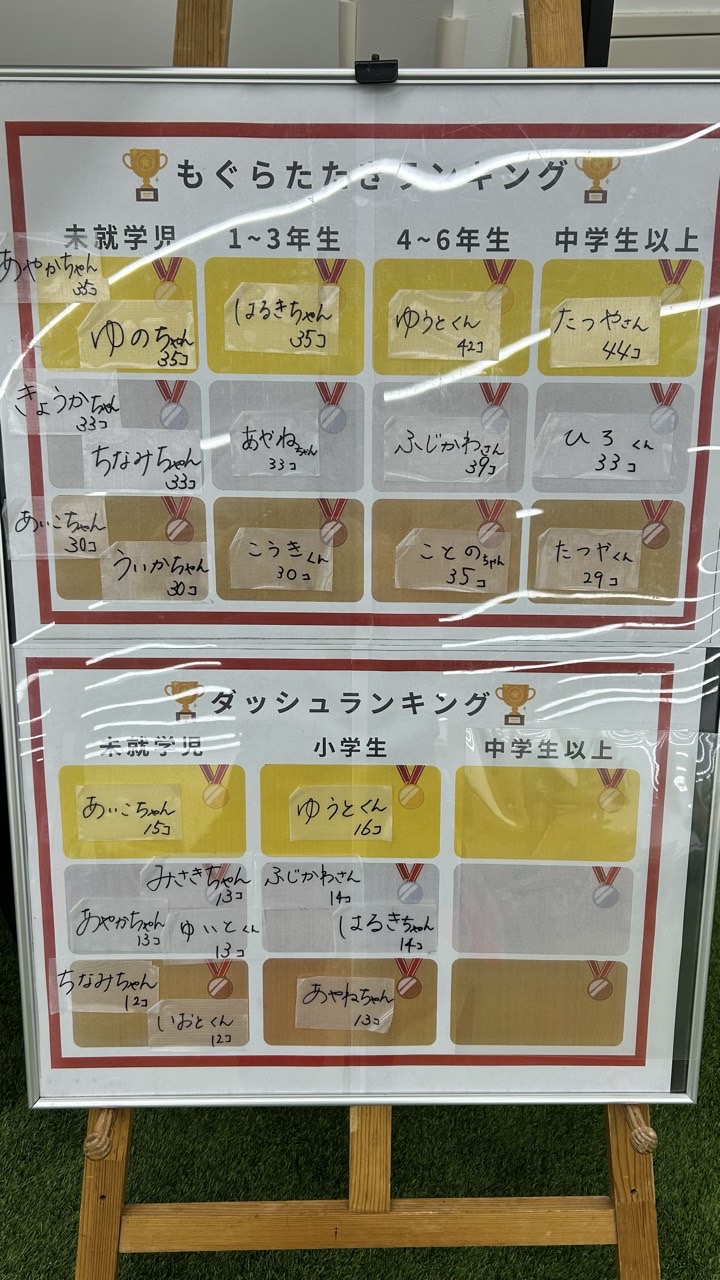 もぐらたたきランキング
未就学児
1~3年生
4~6年生
中学生以上
あやかちゃん
35コ
ゆのちゃん
35コ
はるきちゃん
35コ
ゆうとくん
42コ
たつやさん
44コ
きょうかちゃん
33コ
ちなみちゃん
33コ
あやねちゃん
33コ
ふじかわさん
39コ
ひろくん
33コ
あいこちゃん
30コ
ういかちゃん
30コ
こうきくん
30コ
ことのちゃん
35コ
たつやくん
29コ
ダッシュランキング
未就学児
小学生
中学生以上
あいこちゃん
15コ
ゆうとくん
16コ
みさきちゃん
13コ
あやかちゃん
13コ
ゆいとくん
13コ
ふじかわさん
14コ
はるきちゃん
14コ
ちなみちゃん
12コ
いおとくん
12コ
あやねちゃん
13コ